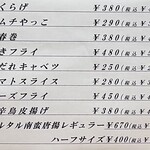 くらげ ¥380(税込 ¥
ムチやっこ ¥290(税込 ¥
春巻 ¥380(税込 ¥
きフライ ¥480(税込 ¥
だれキャベツ ¥250(税込 ¥
マトスライス ¥280(税込 ¥
ーズフライ ¥450(税込 ¥
辛鳥皮揚げ ¥380(税込 ¥
ルタル南蛮唐揚レギュラー ¥670(税込 ¥
ハーフサイズ ¥400(税込 ¥